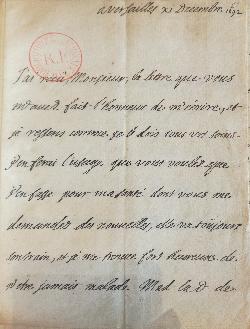 a versailles xi Decembre 1692
R.F.
J'ai receu Monsieur, la lettre que vous
m'avez fait l'honneur de m'escrire, et
je ressens comme je le dois vos soins.
J'en ferai l'usage que vous voulez que
j'en fasse pour ma santé dont vous me
demandez des nouvelles, elle va toujours
son train, et je me trouve fort heureuse de
n'estre jamais malade. Mad la d de